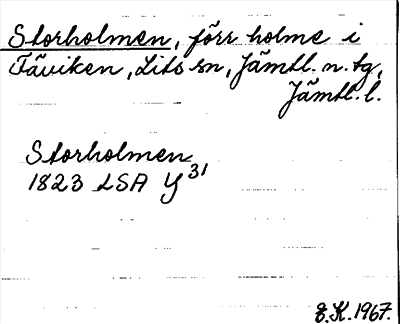 Storholmen, förr holme i
Täviken, Lits sn, Jämtl. n. tg,
Jämtl. l.
Storholmen
1823 LSA Y31
E.K. 1967.